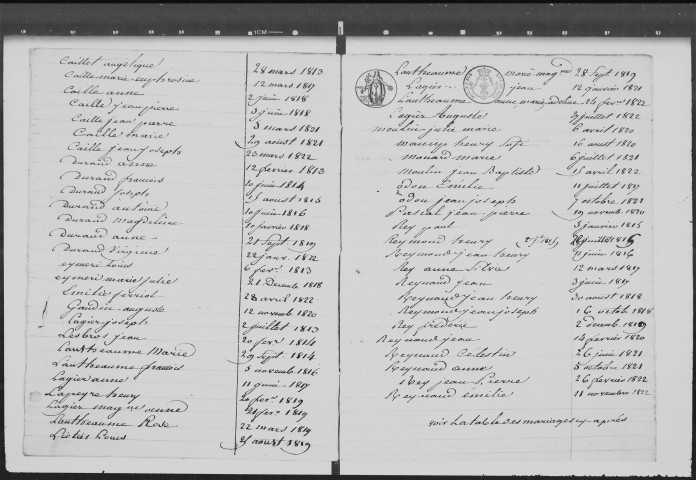 Caillet angelique 28 mars 1813
Caille marie euphrosine 12 mars 1817
Caille anne 2 juin 1818
Caille jean pierre 3 juin 1818
Caille jean pierre 3 mars 1821
Caille marie 29 aoust 1821
Caille jean joseph 23 mars 1822
Durand anne 12 fevrier 1813
Durand francois 10 juin 1814
Durand joseph 15 aoust 1815
Durand antoine 10 juin 1816
Durand magdeleine 10 fevrier 1818
Durand anne 21 Sept 1819
Durand virginie 22 janv. 1822
eymeri Louis 6 fevr. 1813
eymeri marie julie 21 Decemb 1818
Emilie ferriol 28 avril 1822
Gaudin auguste 12 novemb 1820
Lagier joseph 2 juillet 1813
Lesbros jean 20 fevr 1814
Lautheaume Marie 29 Sept 1814
Lautheaume francois 5 novemb 1816
Lagier anne 11 juin
Lapeyre henry 20 fevr. 1819
Lagier 1819
Lautheaume Rose 22 mars 1819
Louis 25 aoust 1819
Lautheaume marie 28 Sept 1819
Lagier jean 12 janvier 1821
Lautheaume anne marie 24 fevr 1822
Lagier auguste juillet 1822
moulin julie marie 6 avril 1820
henry 16 aout 1820
monard marie 6 juillet 1821
moulin jean Baptiste 15 avril 1822
odou Emilie 11 juillet
odou jean joseph 7 octobre 1821
Pascal jean pierre 19 novemb 1820
Rey paul 5 janvier 1815
Reymond henry juillet 1815
Reymond jean henry 11 juin 1816
Rey anne 12 mars 1819
Reynaud jean 3 juin
Reynaud jean henry 30 aoust 1818
Reynaud jean joseph 16 octob 1818
Rey frederic 2 decemb. 1819
Reynaud jean 14 fevrier 1820
Reynaud Celestin 26 juin 1821
Reynaud anne 5 octobre 1821
Rey jean Pierre 26 fevrier 1822
Reynaud emilie 11 novembre 1822
voir la table des mariages cy-après